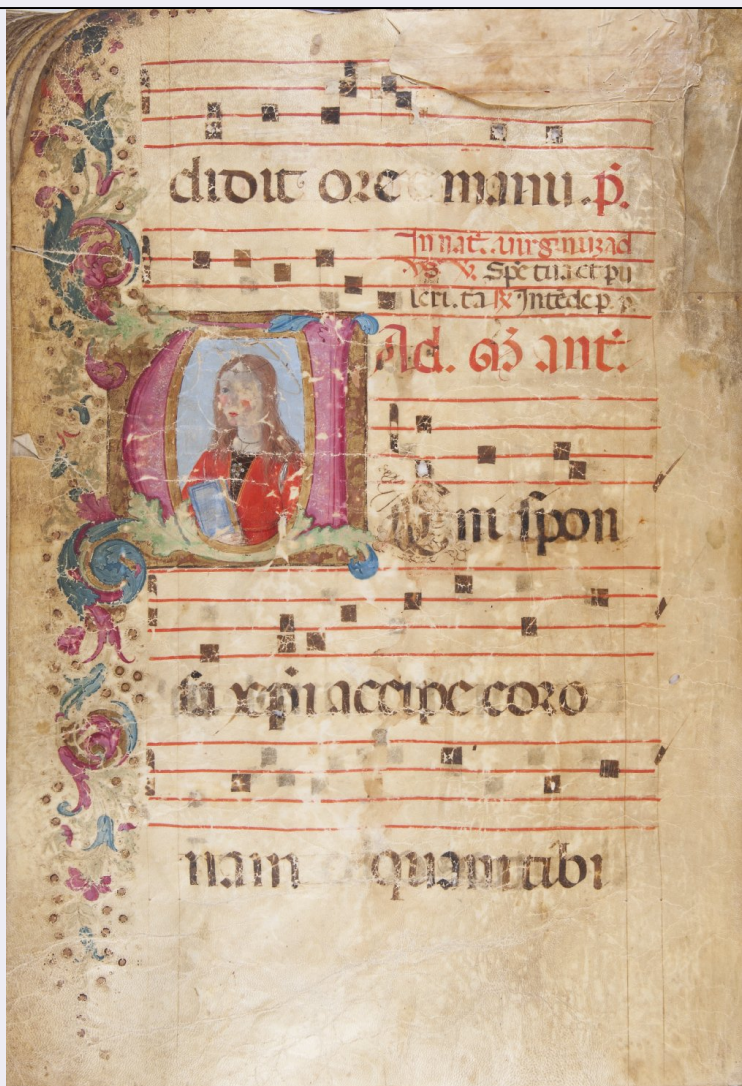 didit ore manu. p̄.
In nat̄. uirginuz ad
v̄s. V. Spē tua et pu
lcri. tā R̄ Intēde p. p.
Ad. m̄ḡ ant̄.
Ueni spon
sa xp̄i accipe coro
nam quam tibi